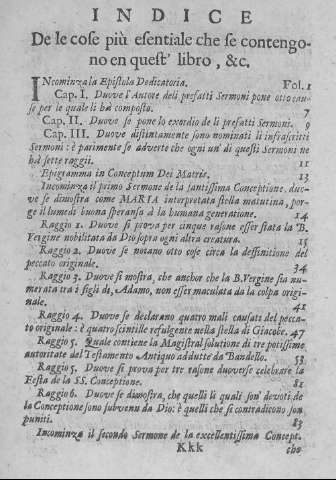 INDICE
De le cose più esentiale che se contengo-
no en quest' libro, &c.
INcominza la Epistola Dedicatoria. Fol. 1
Cap. I. Duove l'Autore deli prefatti Sermoni pone otto cau-
se per le quale li hà composto. 7
Cap. II. Duove se pone lo exordio de li prefatti Sermoni. 9
Cap. III. Duove distintamente sono nominati li infrascritti
Sermoni: è parimente se adverte che ogni un' di questi Sermoni ne
hà sette raggii. 11
Epigramma in Conceptum Dei Matris. 13
Incominza il primo Sermone de la santissima Conceptione. duo-
ve se dimostra come MARIA interpretata stella matutina, por-
ge il lume di buona speransa à la humana generatione. 14
Raggio 1. Duove si prova per cinque rasone esser stata la B.
Vergine nobilitata da Dio sopra ogni altra creatura. 15
Raggio 2. Duove se notano otto cose circa la deffinitione del
peccato originale. 34
Raggio 3. Duove si mostra, che anchor che la B. Vergine sia nu-
merata tra i figli di, Adamo, non esser maculata da la colpa origi-
nale. 41
Raggio 4. Duove se declarano quatro mali causate del pecca-
to originale: è quatro scintille refulgente nella stella di Giacobe. 47
Raggio 5. Quale contiene la Magistral solutione di tre potissime
autoritate del Testamento Antiquo addutte da Bandello. 53
Raggio 5. Duove si prova per tre rasone duoverse celebrare la
Festa de la SS. Conceptione. 81
Raggio 6. Duove se dimostra, che quelli li quali son' devoti de
la Conceptione sono subvenu da Dio: è quelli che si contradicono son
puniti. 83
Incominza il secondo Sermone de la excellentissima Concept.
Kkk cho